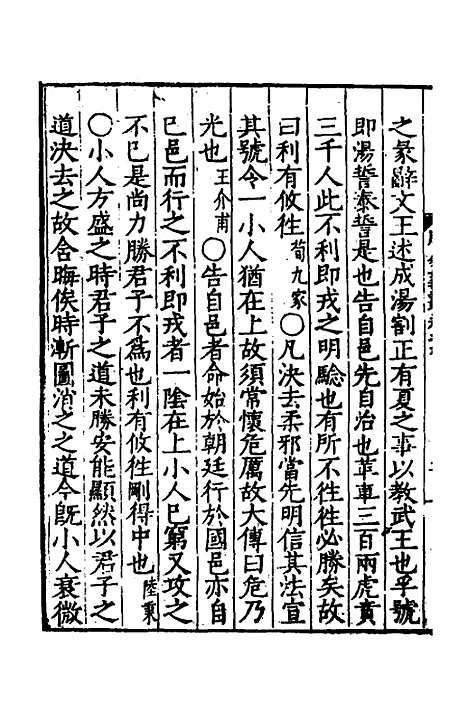 之彖辭文王述成湯割正有夏之事以教武王也孚號
即湯誓泰誓是也告自邑先自治也革車三百兩虎賁
三千人此不利即戎之明驗也有所不徃徃必勝矣故
曰利有攸徃荀九家〇凡決去柔邪當先明信其法宣
其號令一小人猶在上故須常懷危厲故大傳曰危乃
光也王介甫〇告自邑者命始於朝廷行於國邑亦自
已邑而行之不利即戎者一陰在上小人巳窮又攻之
不巳是尚力勝君子不爲也利有攸徃剛得中也陸秉
〇小人方盛之時君子之道未勝安能顯然以君子之
道決去之故含晦俟時漸圖消之之道今旣小人衰微